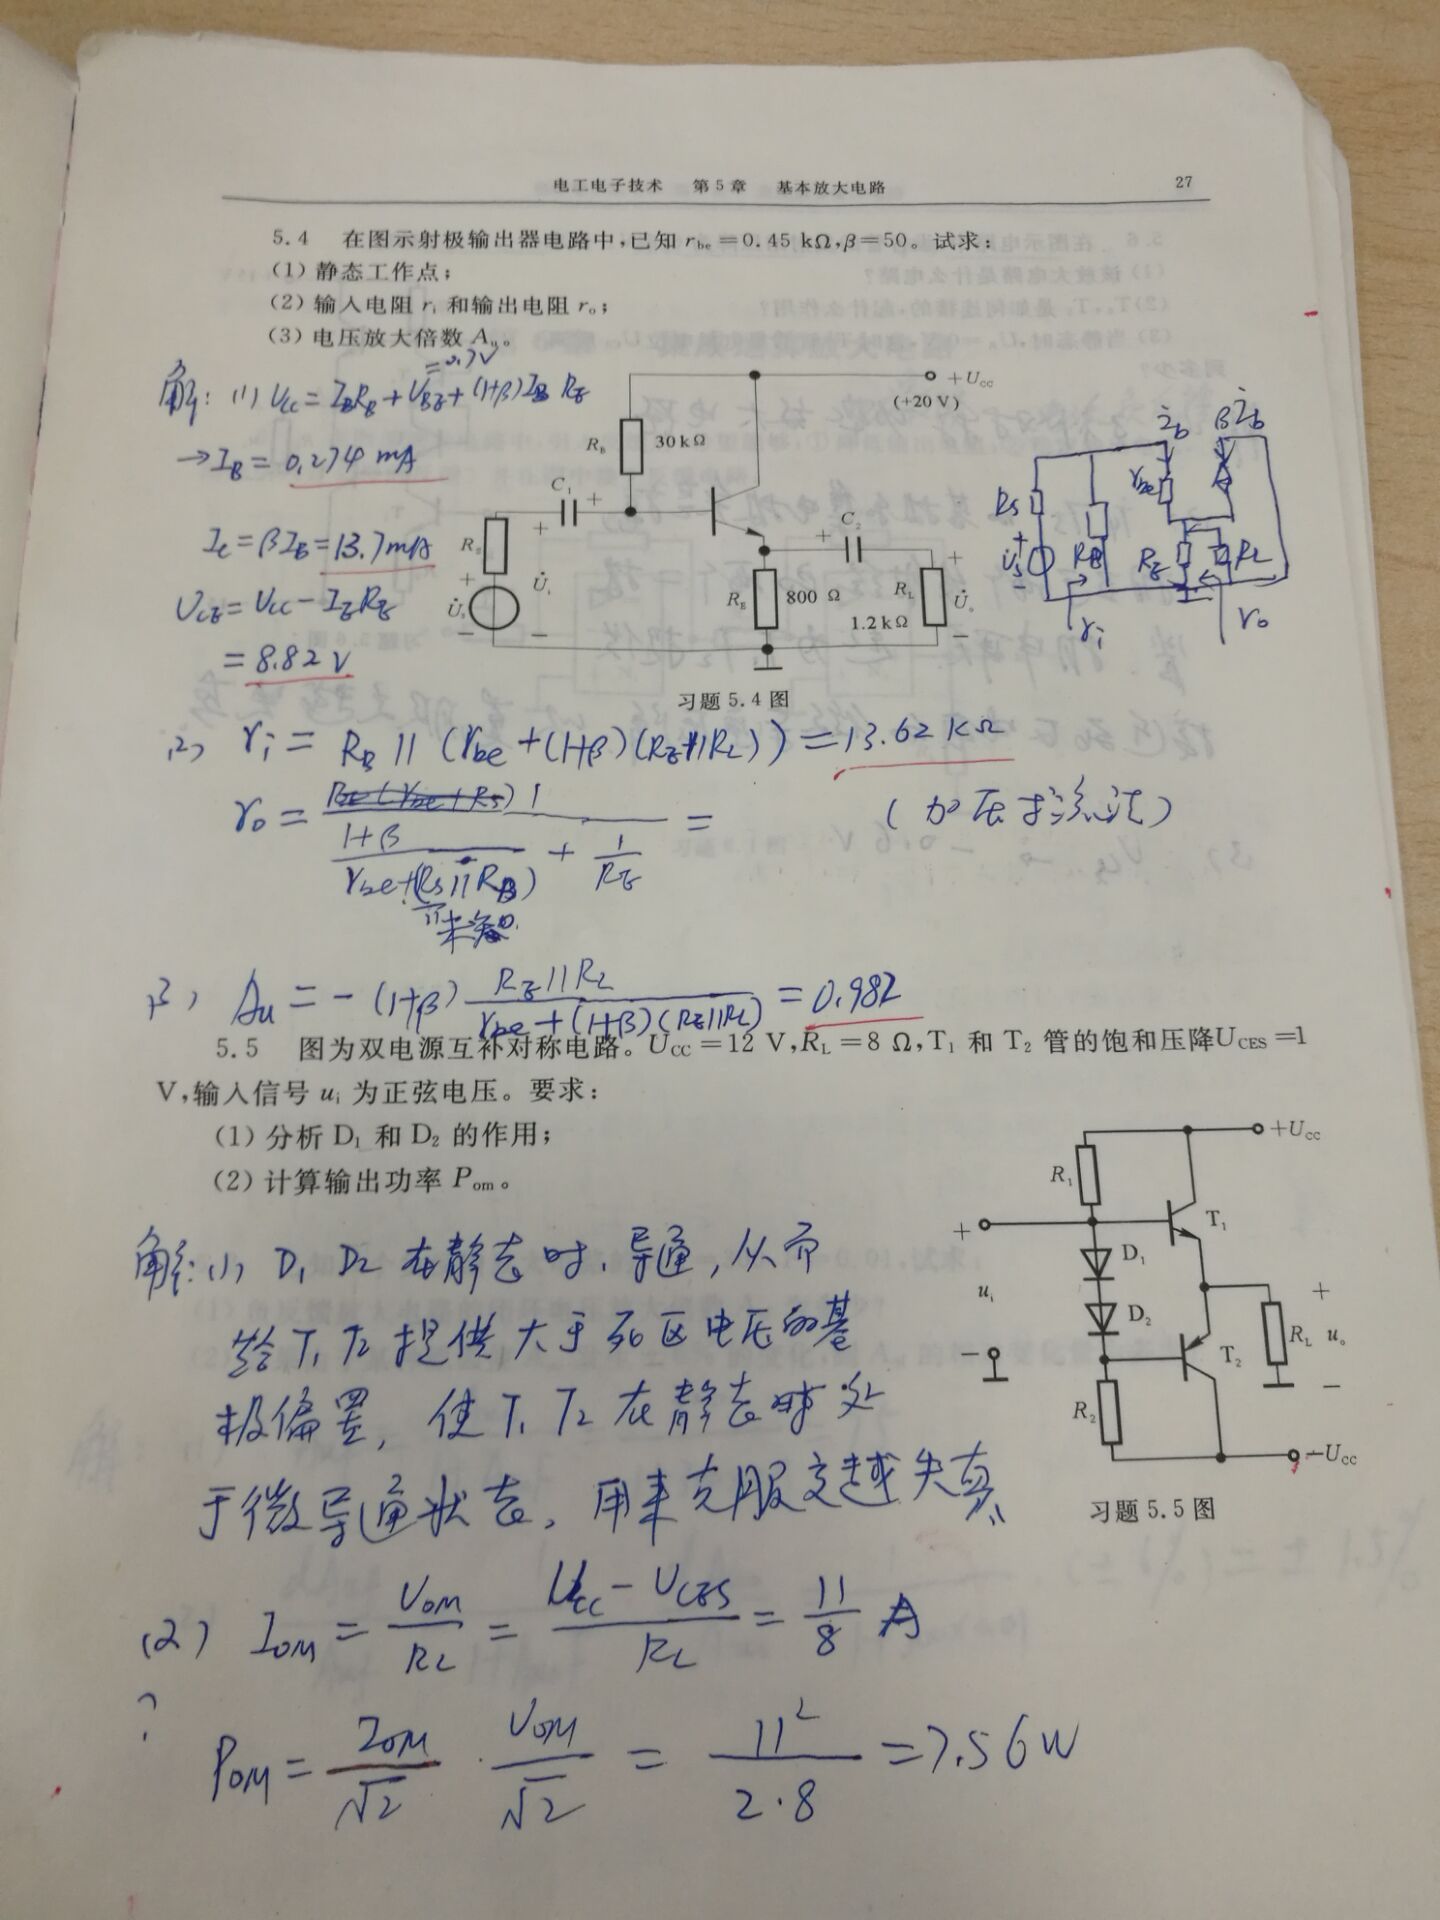 电工电子技术 第5章 基本放大电路 27
5.4 在图示射极输出器电路中,已知 rbe=0.45 kΩ,β=50。试求:
(1) 静态工作点;
(2) 输入电阻 ri 和输出电阻 ro;
(3) 电压放大倍数 Au。
=0.7V
解: (1) Ucc = IBRB + UBE + (1+β)IB RE
→ IB = 0.274 mA
IC = βIB = 13.7mA
UCE = Ucc - IERE
= 8.82 V
+Ucc
(+20 V)
RB 30 kΩ
C1 +
Rs + U̇i
+ U̇s − −
+ C2
RE 800 Ω
RL 1.2 kΩ
+ U̇o −
习题 5.4 图
ib βib
Rs rbe
U̇s + − RB RE RL
ri ro
(2) ri = RB // (rbe + (1+β)(RE//RL)) = 13.62 kΩ
ro = 1 / ((1+β)/(rbe+(Rs//RB)) + 1/RE) =
(加压求流法)
(3) Au = -(1+β) RE//RL / (rbe + (1+β)(RE//RL)) = 0.982
5.5 图为双电源互补对称电路。UCC=12 V,RL=8 Ω,T1 和 T2 管的饱和压降UCES=1
V,输入信号 ui 为正弦电压。要求:
(1) 分析 D1 和 D2 的作用;
(2) 计算输出功率 Pom。
+Ucc
R1
T1
+
D1
ui
D2
−
T2
R2
RL + uo −
−Ucc
习题 5.5 图
解: (1) D1 D2 在静态时,导通,从而
给 T1 T2 提供大于死区电压的基
极偏置,使 T1 T2 在静态时处
于微导通状态,用来克服交越失真。
(2) IOM = UOM/RL = (Ucc - UCES)/RL = 11/8 A
?
POM = IOM/√2 · UOM/√2 = 11²/(2·8) = 7.56 W